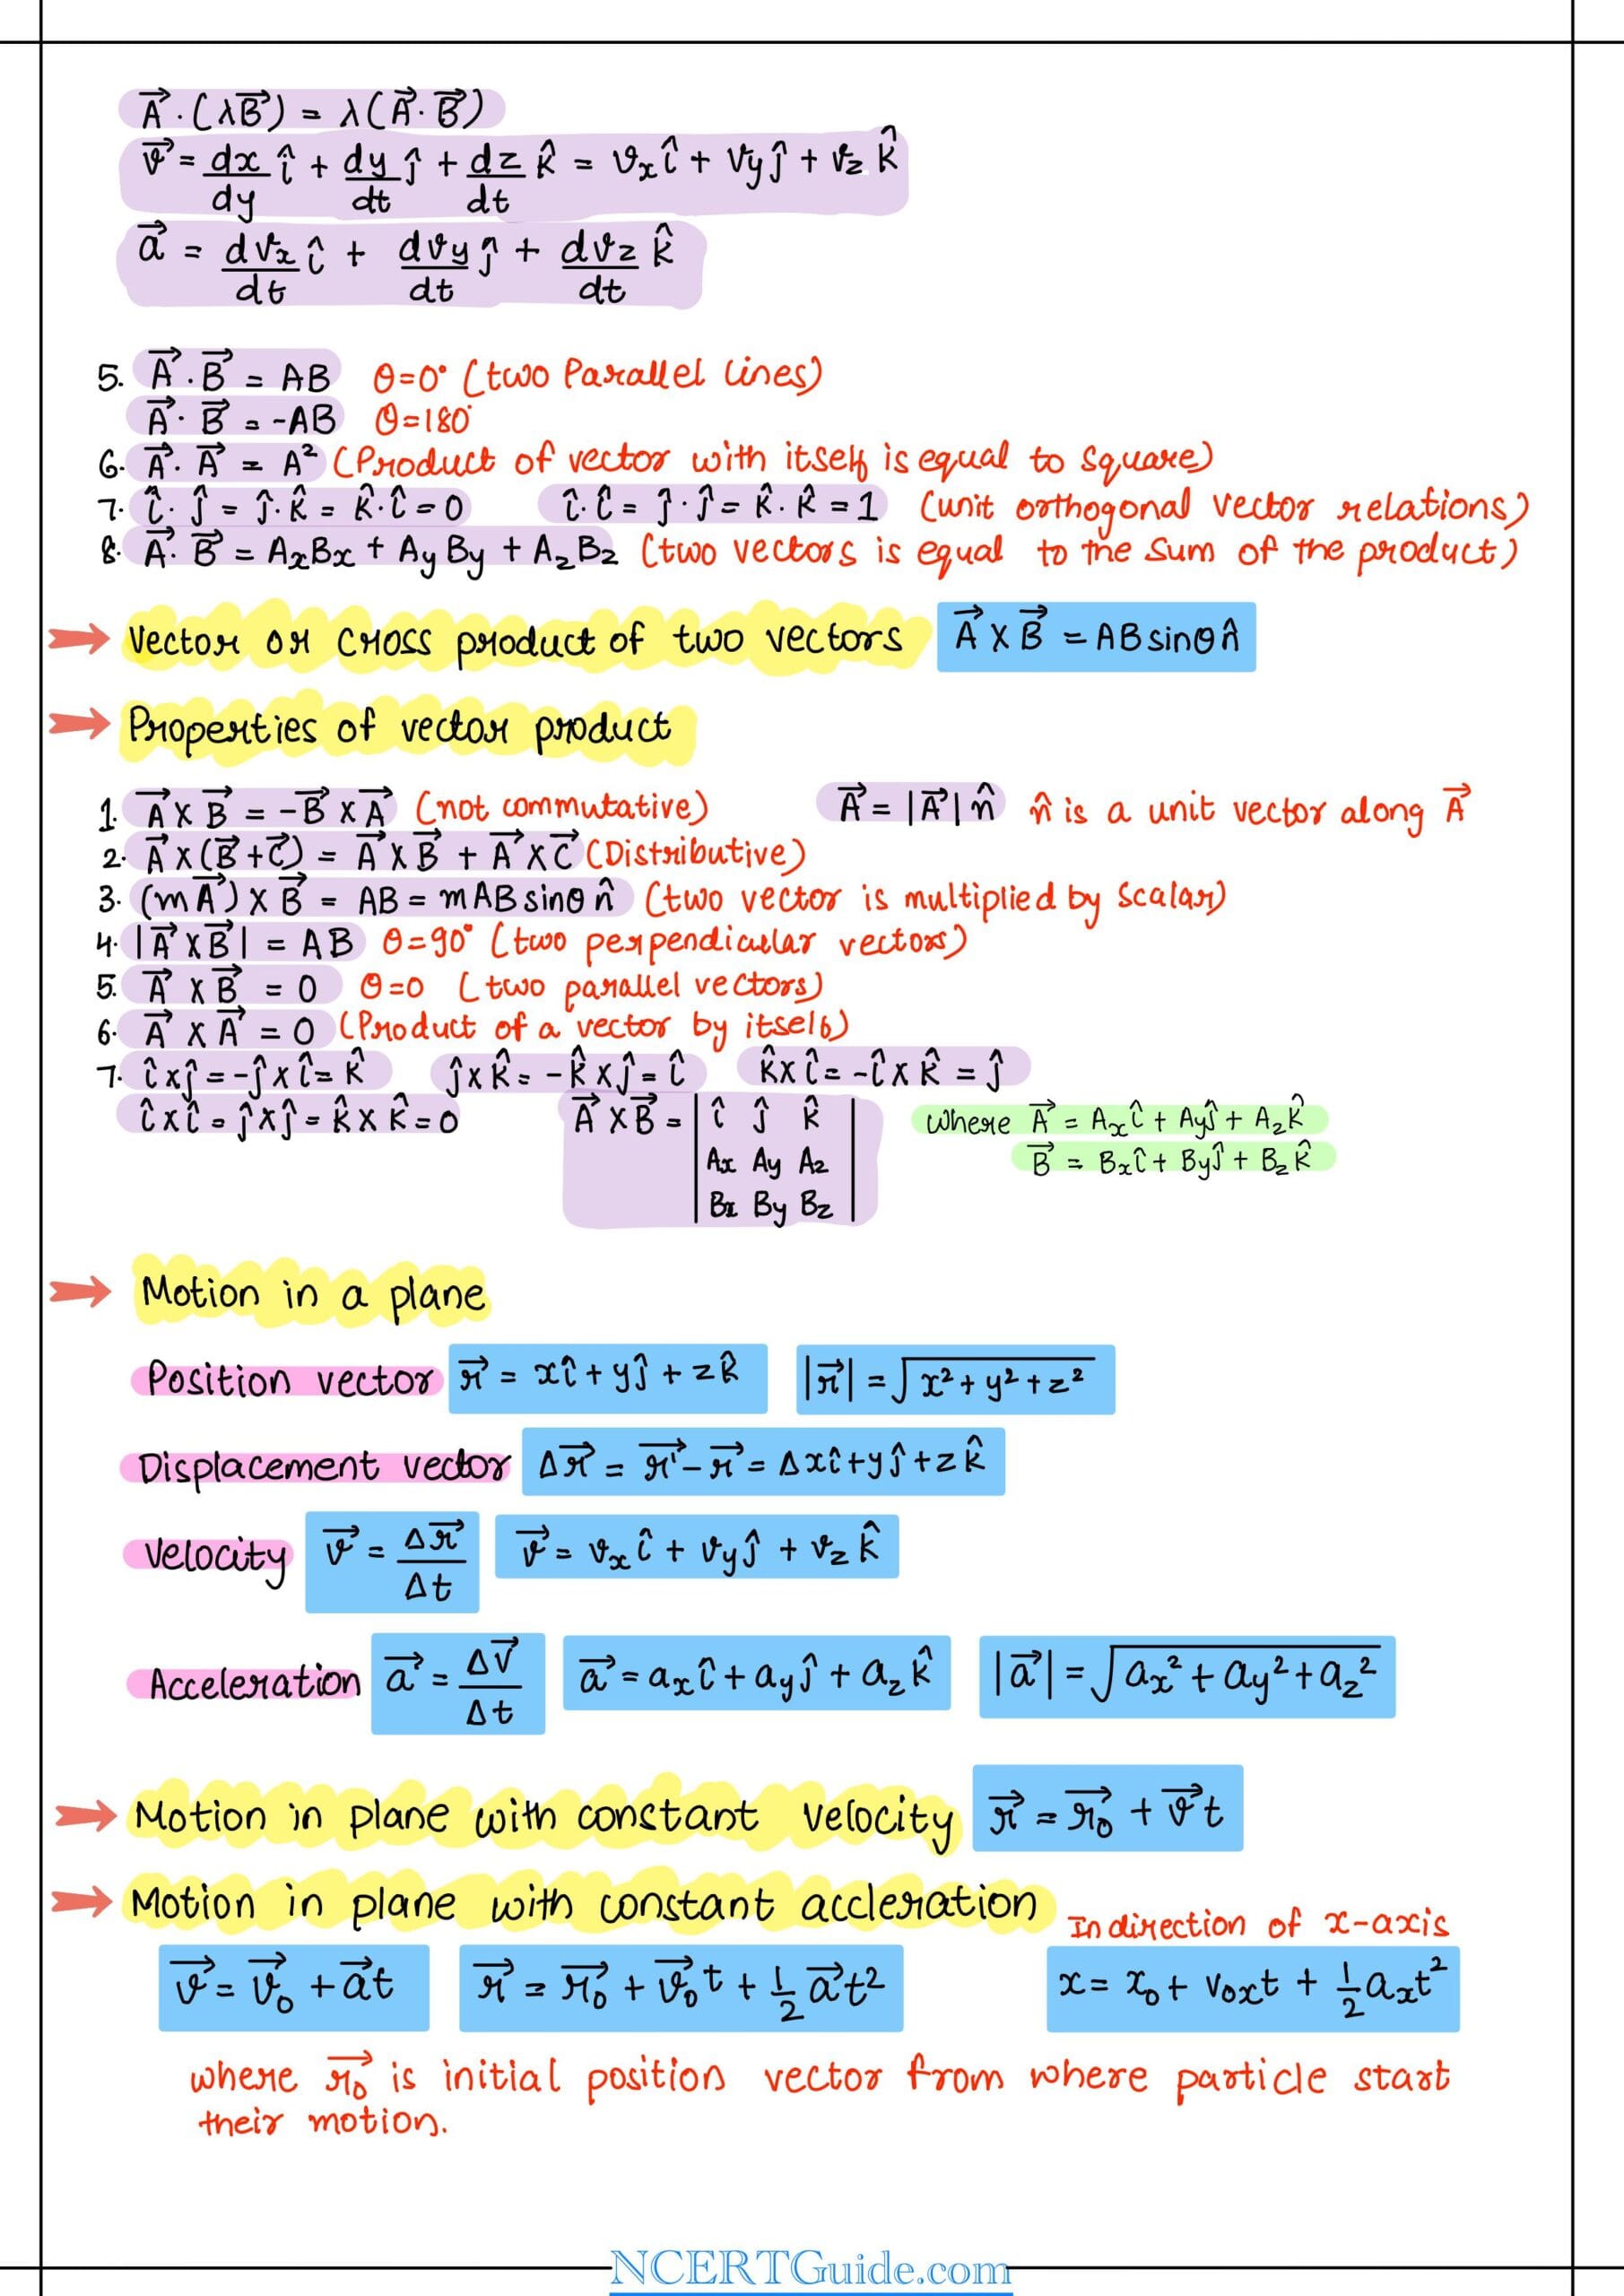 A⃗ · (λB⃗) = λ(A⃗ · B⃗)
v⃗ = dx/dy î + dy/dt ĵ + dz/dt k̂ = vₓî + Vyĵ + vz k̂
a⃗ = dvₓ/dt î + dvy/dt ĵ + dvz/dt k̂
5. A⃗ · B⃗ = AB θ=0° (two Parallel lines)
A⃗ · B⃗ = -AB θ=180°
6. A⃗ · A⃗ = A² (Product of vector with itself is equal to square)
7. î · ĵ = ĵ · k̂ = k̂ · î = 0 î · î = ĵ · ĵ = k̂ · k̂ = 1 (unit orthogonal vector relations)
8. A⃗ · B⃗ = AₓBₓ + AyBy + AzBz (two vectors is equal to the sum of the product)
Vector or cross product of two vectors A⃗ X B⃗ = AB sinθ n̂
Properties of vector product
1. A⃗ X B⃗ = -B⃗ X A⃗ (not commutative) A⃗ = |A⃗| n̂ n̂ is a unit vector along A⃗
2. A⃗ X (B⃗ + C⃗) = A⃗ X B⃗ + A⃗ X C⃗ (Distributive)
3. (mA⃗) X B⃗ = AB = mAB sinθ n̂ (two vector is multiplied by scalar)
4. |A⃗ X B⃗| = AB θ=90° (two perpendicular vectors)
5. A⃗ X B⃗ = 0 θ=0 (two parallel vectors)
6. A⃗ X A⃗ = 0 (Product of a vector by itself)
7. î x ĵ = -ĵ x î = k̂ ĵ x k̂ = -k̂ x ĵ = î k̂ x î = -î x k̂ = ĵ
î x î = ĵ x ĵ = k̂ x k̂ = 0 A⃗ X B⃗ = | î ĵ k̂ | where A⃗ = Aₓî + Ayĵ + Azk̂
Ax Ay Az B⃗ = Bₓî + Byĵ + Bzk̂
Bx By Bz
Motion in a plane
Position vector r⃗ = xî + yĵ + zk̂ |r⃗| = √x² + y² + z²
Displacement vector Δr⃗ = r⃗' - r⃗ = Δxî + yĵ + zk̂
Velocity v⃗ = Δr⃗/Δt v⃗ = vₓî + vyĵ + vzk̂
Acceleration a⃗ = Δv⃗/Δt a⃗ = aₓî + ayĵ + azk̂ |a⃗| = √aₓ² + ay² + az²
Motion in plane with constant velocity r⃗ = r⃗₀ + v⃗t
Motion in plane with constant accleration
In direction of x-axis
v⃗ = v⃗₀ + a⃗t r⃗ = r⃗₀ + v⃗₀t + 1/2 a⃗t² x = x₀ + v₀ₓt + 1/2 aₓt²
where r⃗₀ is initial position vector from where particle start
their motion.
NCERTGuide.com